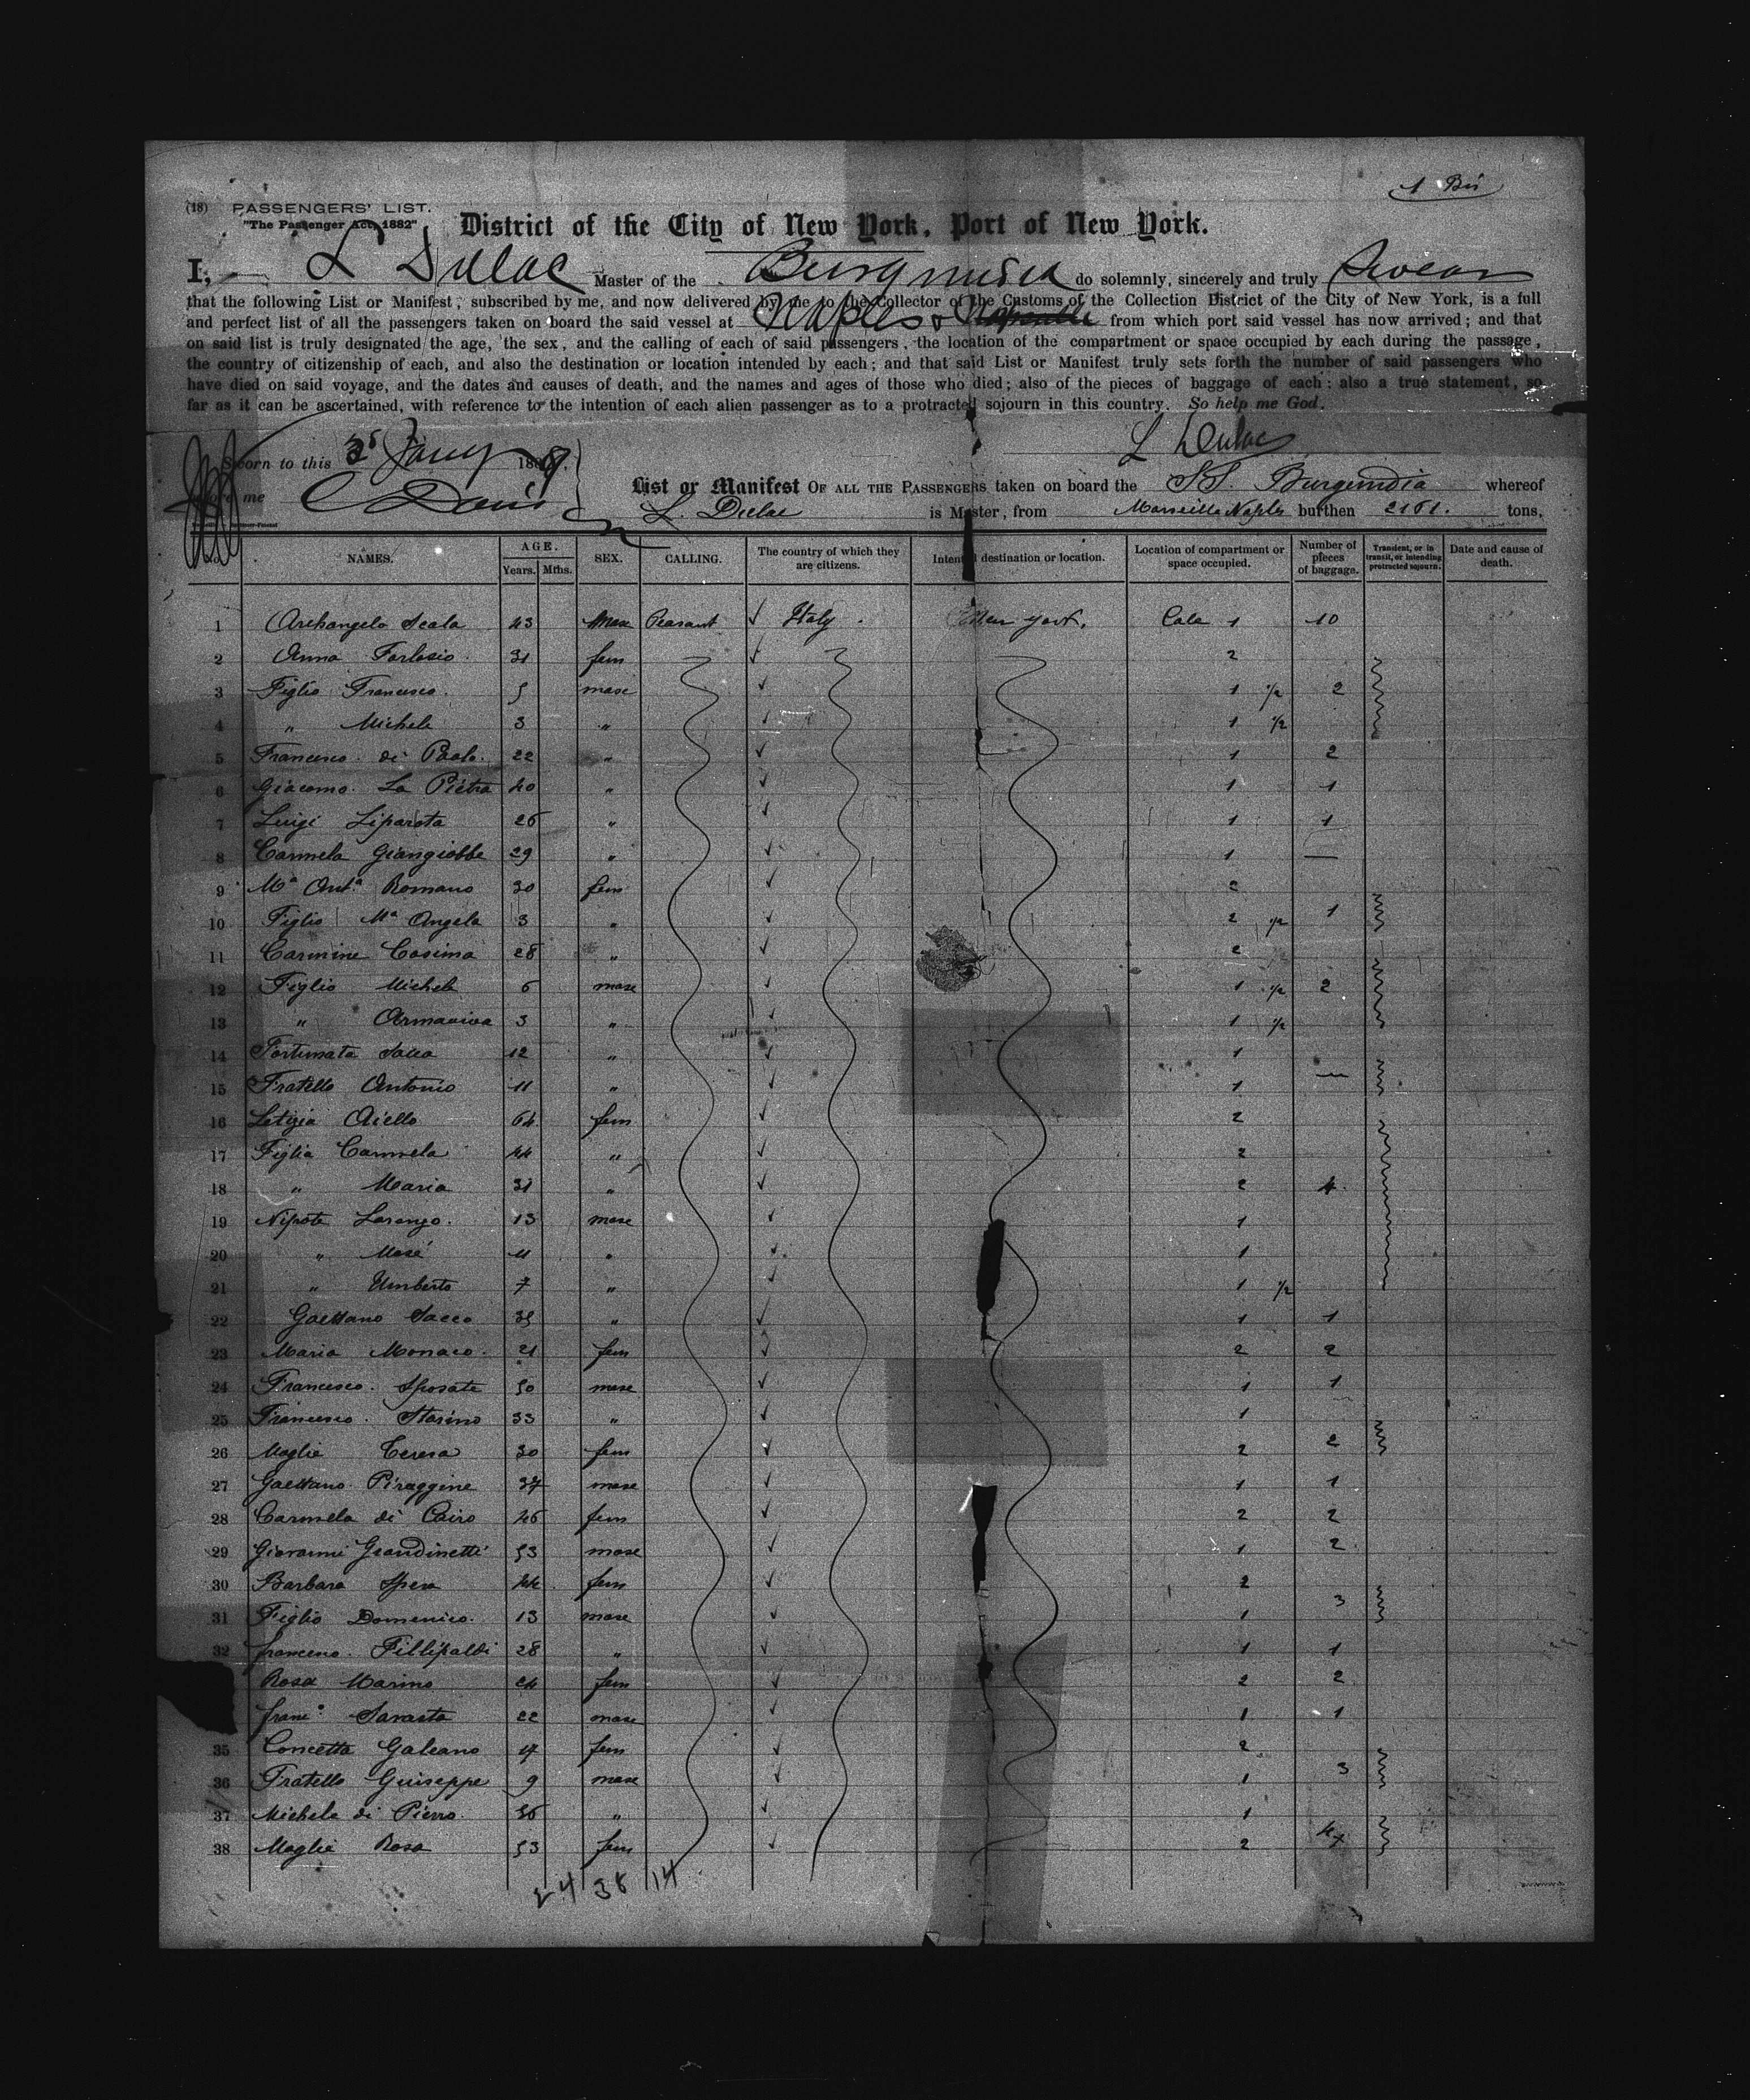 1 Bis
(18) PASSENGERS' LIST.
"The Passenger Act, 1882"
District of the City of New York, Port of New York.
I, L Dulac Master of the Burgundia do solemnly, sincerely and truly Swear
that the following List or Manifest, subscribed by me, and now delivered by me to the Collector of the Customs of the Collection District of the City of New York, is a full
and perfect list of all the passengers taken on board the said vessel at Naples & from which port said vessel has now arrived; and that
on said list is truly designated the age, the sex, and the calling of each of said passengers, the location of the compartment or space occupied by each during the passage,
the country of citizenship of each, and also the destination or location intended by each; and that said List or Manifest truly sets forth the number of said passengers who
have died on said voyage, and the dates and causes of death, and the names and ages of those who died; also of the pieces of baggage of each: also a true statement, so
far as it can be ascertained, with reference to the intention of each alien passenger as to a protracted sojourn in this country. So help me God.
L Dulac
Sworn to this Jany 189.
before me C Davis
List or Manifest OF ALL THE PASSENGERS taken on board the SS. Burgundia whereof
L. Dulac is Master, from Marseille Naples burthen 2161. tons,
No. NAMES. AGE. Years. Mths. SEX. CALLING. The country of which they are citizens. Intended destination or location. Location of compartment or space occupied. Number of pieces of baggage. Transient, or in transit, or intending protracted sojourn. Date and cause of death.
1 Archangelo Scala 43 masc Peasant Italy New York. Cale 1 10
2 Anna Forlosio 31 fem 2
3 Figlio Francesco 5 masc 1 1/2 2
4 " Michele 3 " 1 1/2
5 Francesco di Paolo 22 " 1 2
6 Giacomo La Pietra 40 " 1 1
7 Luigi Liparota 26 " 1 1
8 Carmela Giangiobbe 29 " 1 —
9 Mª Antª Romano 30 fem 2
10 Figlio Mª Angela 3 " 2 1/2 1
11 Carmine Cosima 28 " 2
12 Figlio Michele 6 masc 1 1/2 2
13 " Armaviva 3 " 1 1/2
14 Fortunata Sacco 12 " 1
15 Fratello Antonio 11 " 1 —
16 Letizia Aiello 64 fem 2
17 Figlia Carmela 44 " 2
18 " Maria 31 " 2 4
19 Nipote Lorenzo 13 masc 1
20 " Mosé 11 " 1
21 " Umberto 7 " 1 1/2
22 Gaettano Sacco 35 " 1 1
23 Maria Monaco 21 fem 2 2
24 Francesco Sposate 50 masc 1 1
25 Francesco Starino 33 " 1
26 Moglie Teresa 30 fem 2 2
27 Gaettano Piraggine 37 masc 1 1
28 Carmela di Cairo 46 fem 2 2
29 Giovanni Grandinetti 53 masc 1 2
30 Barbara Spera 44 fem 2
31 Figlio Domenico 13 masc 1 3
32 Francesco Fillipaldi 28 " 1 1
Rosa Marino 24 fem 2 2
Franc° Savasta 22 masc 1 1
35 Concetta Galeano 17 fem 2
36 Fratello Guiseppe 9 masc 1 3
37 Michele di Pierro 56 " 1
38 Moglie Rosa 53 fem 2 4
24 38 14